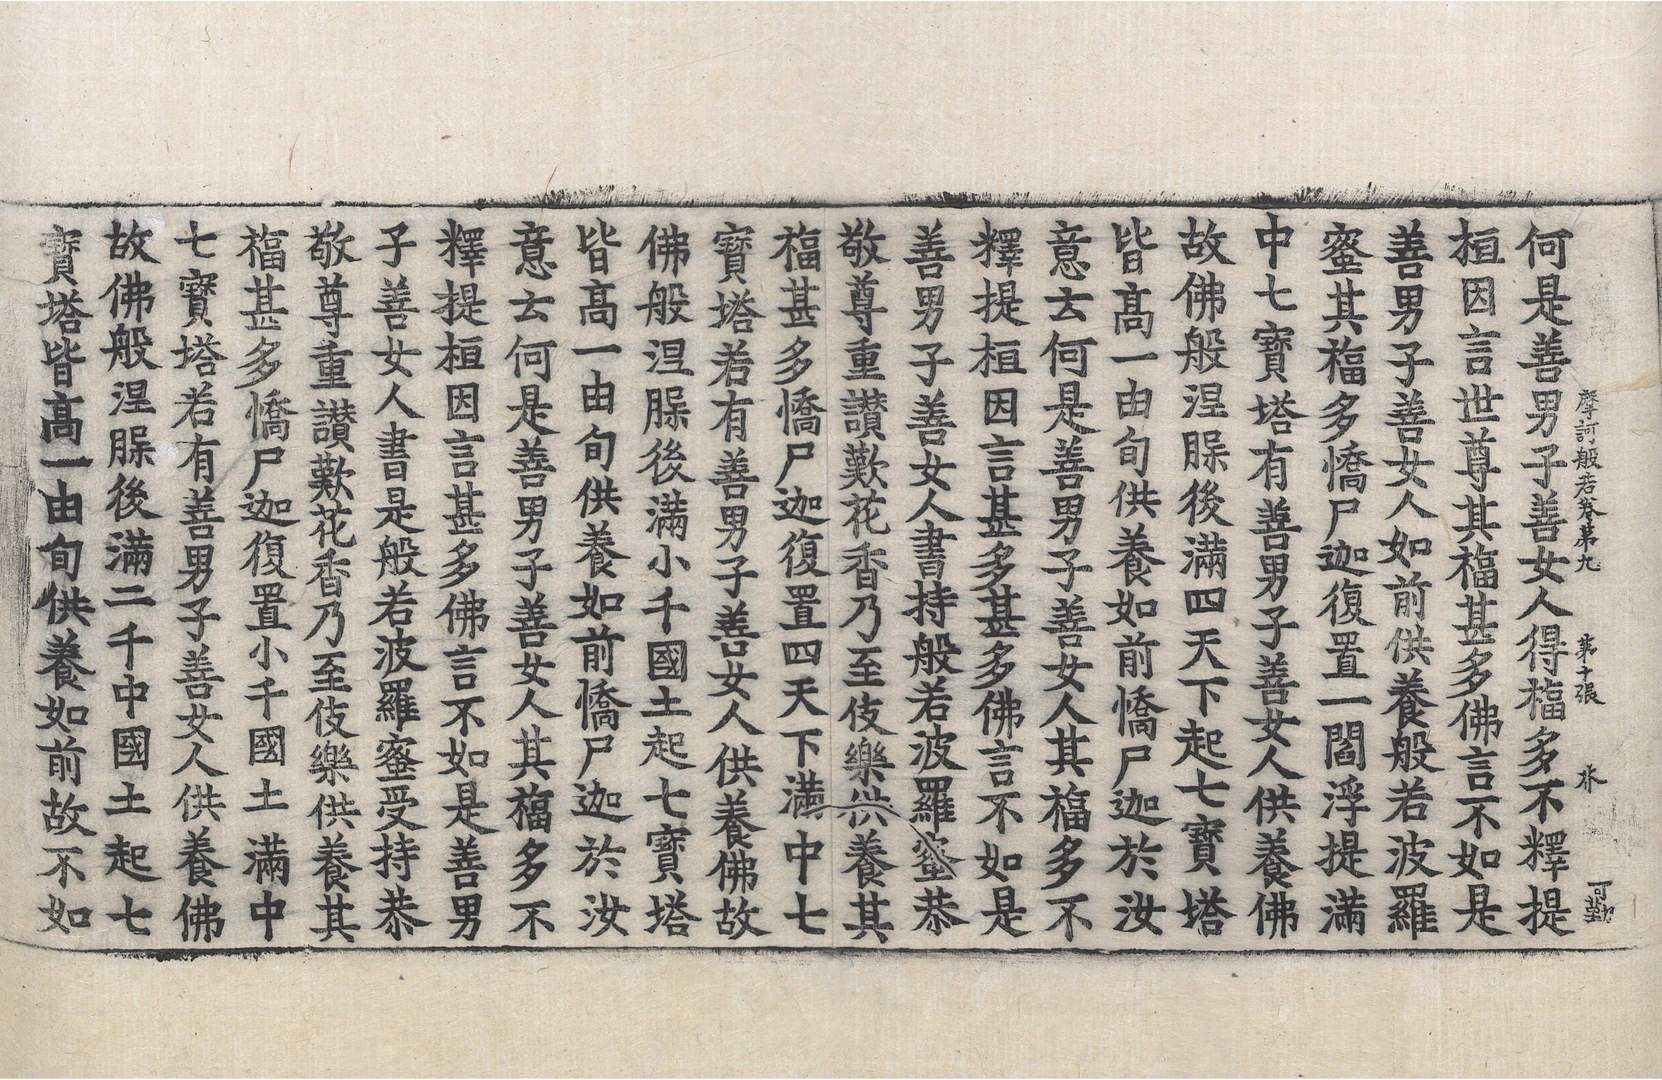 摩訶般若卷第九 第十張 可勤
何是善男子善女人得福多不釋提
桓因言世尊其福甚多佛言不如是
善男子善女人如前供養般若波羅
蜜其福多憍尸迦復置一閻浮提滿
中七寶塔有善男子善女人供養佛
故佛般涅槃後滿四天下起七寶塔
皆高一由旬供養如前憍尸迦於汝
意云何是善男子善女人其福多不
釋提桓因言甚多甚多佛言不如是
善男子善女人書持般若波羅蜜恭
敬尊重讃歎花香乃至伎樂供養其
福甚多憍尸迦復置四天下滿中七
寶塔若有善男子善女人供養佛故
佛般涅槃後滿小千國土起七寶塔
皆高一由旬供養如前憍尸迦於汝
意云何是善男子善女人其福多不
釋提桓因言甚多佛言不如是善男
子善女人書是般若波羅蜜受持恭
敬尊重讃歎花香乃至伎樂供養其
福甚多憍尸迦復置小千國土滿中
七寶塔若有善男子善女人供養佛
故佛般涅槃後滿二千中國土起七
寶塔皆高一由旬供養如前故不如